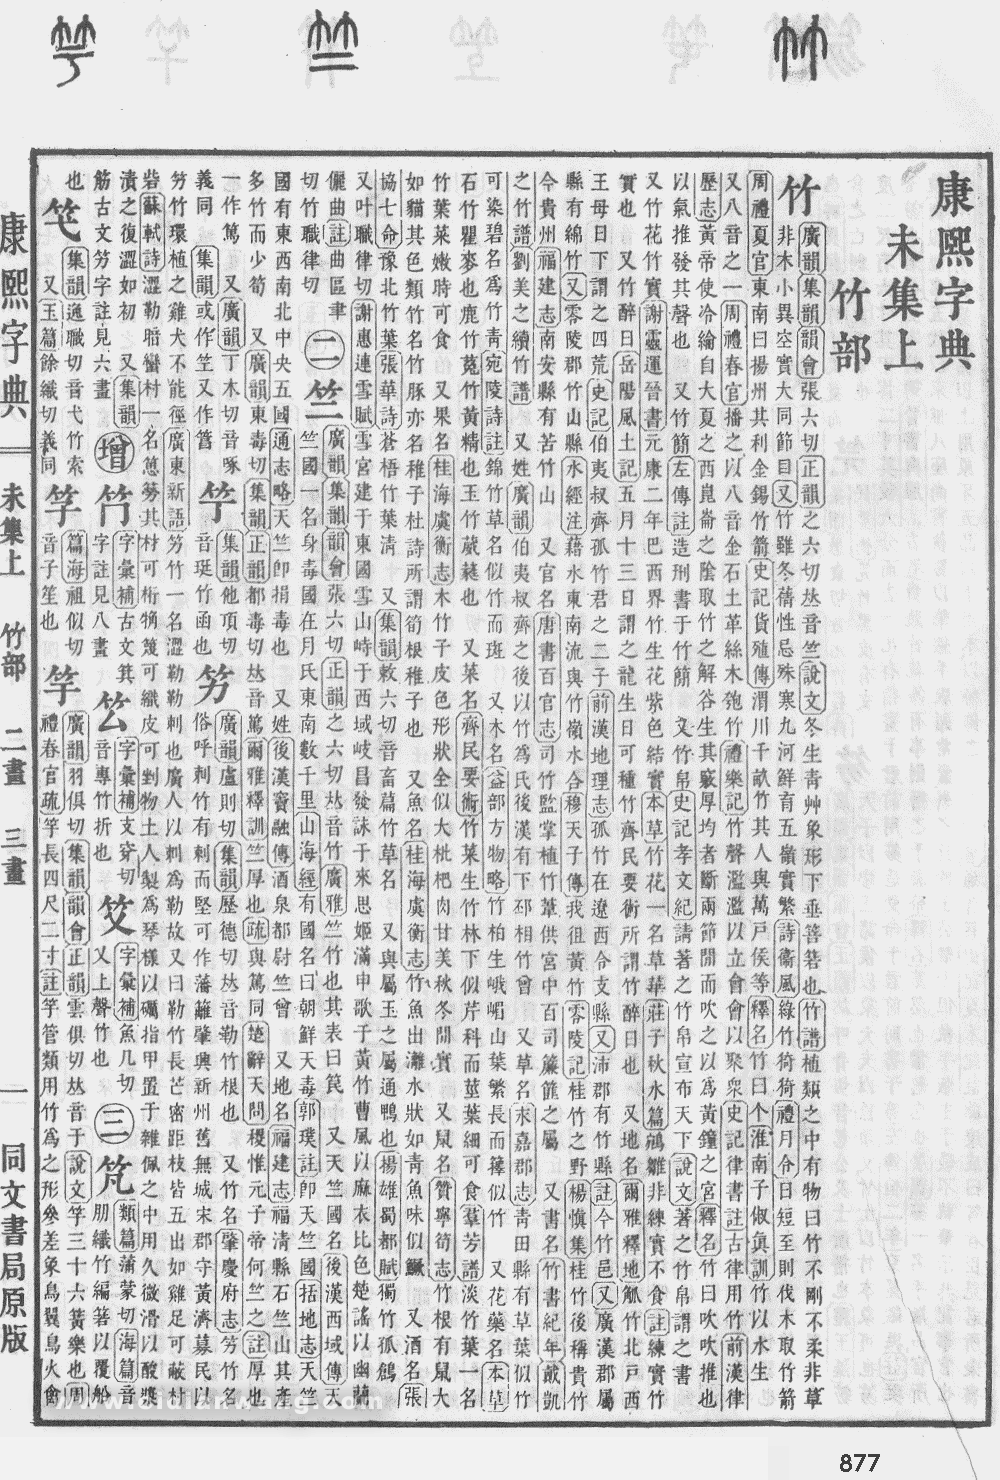 康熙字典
未集上
竹部
竹廣韻集韻韻會張六切正韻之六切𠀤音竺說文冬生靑艸象形下垂箁箬也竹譜植類之中有物曰竹不剛不柔非草
非木小異空實大同節目又竹雖冬蒨性忌殊寒九河鮮育五嶺實繁詩衞風綠竹猗猗禮月令日短至則伐木取竹箭
周禮夏官東南曰揚州其利金錫竹箭史記貨殖傳渭川千畝竹其人與萬戸侯等釋名竹曰个淮南子俶眞訓竹以水生
又八音之一周禮春官播之以八音金石土革絲木匏竹禮樂記竹聲濫濫以立會會以聚衆史記律書註古律用竹前漢律
歷志黃帝使冷綸自大夏之西崑崙之隂取竹之解谷生其竅厚均者斷兩節閒而吹之以爲黃鐘之宮釋名竹曰吹吹推也
以氣推發其聲也 又竹簡左傳註造刑書于竹簡 又竹帛史記孝文紀請著之竹帛宣布天下說文著之竹帛謂之書
又竹花竹實謝靈運晉書元康二年巴西界竹生花紫色結實本草竹花一名草華莊子秋水篇鵷雛非練實不食註練實竹
實也 又竹醉日岳陽風土記五月十三日謂之龍生日可種竹齊民要術所謂竹醉日也 又地名爾雅釋地觚竹北戸西
王母日下謂之四荒史記伯夷叔齊孤竹君之二子前漢地理志孤竹在遼西令支縣又沛郡有竹縣註今竹邑又廣漢郡屬
縣有綿竹又零陵郡竹山縣水經注藉水東南流與竹嶺水合穆天子傳我徂黃竹零陵記桂竹之野楊愼集桂竹後稱貴竹
今貴州福建志南安縣有苦竹山 又官名唐書百官志司竹監掌植竹葦供宮中百司簾篚之屬 又書名竹書紀年戴凱
之竹譜劉美之續竹譜 又姓廣韻伯夷叔齊之後以竹爲氏後漢有下邳相竹曾 又草名永嘉郡志靑田縣有草葉似竹
可染碧名爲竹靑宛陵詩註錦竹草名似竹而斑 又木名益部方物略竹柏生峨嵋山葉繁長而籜似竹 又花藥名本草
石竹瞿麥也鹿竹菟竹黃精也玉竹葳蕤也 又菜名齊民要術竹菜生竹林下似芹科而莖葉細可食羣芳譜淡竹葉一名
竹葉菜嫩時可食 又果名桂海虞衡志木竹子皮色形狀全似大枇杷肉甘美秋冬閒實 又鼠名贊寧筍志竹根有鼠大
如貓其色類竹名竹豚亦名稚子杜詩所謂筍根稚子也 又魚名桂海虞衡志竹魚出灕水狀如靑魚味似鱖 又酒名張
協七命豫北竹葉張華詩蒼梧竹葉淸 又集韻敕六切音畜萹竹草名 又與屬玉之屬通鴨也揚雄蜀都賦獨竹孤鶬
又叶職律切謝惠連雪賦雪宮建于東國雪山峙于西域岐昌發詠于來思姬滿申歌于黃竹曹風以麻衣比色楚謠以幽蘭
儷曲註曲區聿切竹職律切
二 竺廣韻集韻韻會張六切正韻之六切𠀤音竹廣雅竺竹也其表曰笢 又天竺國名後漢西域傳天
竺國一名身毒國在月氏東南數千里山海經有國名曰朝鮮天毒郭璞註卽天竺國括地志天竺
國有東西南北中央五國通志略天竺卽捐毒也 又姓後漢竇融傳酒泉都尉竺曾 又地名福建志福淸縣石竺山其產
多竹而少筍 又廣韻東毒切集韻正韻都毒切𠀤音篤爾雅釋訓竺厚也疏與篤同楚辭天問稷惟元子帝何竺之註厚也
一作篤 又廣韻丁木切音啄
義同 集韻或作笁又作䈞
竹集韻他頂切音珽竹函也
竻廣韻盧則切集韻歷德切𠀤音勒竹根也 又竹名肇慶府志竻竹名
俗呼刺竹有刺而堅可作藩籬肇興新州舊無城宋郡守黃濟募民以
竻竹環植之雞犬不能徑廣東新語竻竹一名澀勒勒刺也廣人以刺爲勒故又曰勒竹長芒密距枝皆五出如雞足可蔽村
砦蘇軾詩澀勒暗蠻村一名䓗竻其材可桁桷篾可織皮可剉物土人製爲琴樣以礪指甲置于雜佩之中用久微滑以酸漿
漬之復澀如初 又集韻筋古文竻字註見六畫
增 字彙補古文箕字註見八畫
字彙補支穿切音專竹折也
字彙補魚几切又上聲竹也
三 竼類篇蒲蒙切海篇音朋織竹編箬以覆船也
集韻逸職切音弋竹索 又玉篇餘織切義同
篇海祖似切音子笙也
竽廣韻羽俱切集韻韻會正韻雲俱切𠀤音于說文竽三十六簧樂也周
禮春官疏竽長四尺二寸註竽管類用竹爲之形參差象鳥翼鳥火禽
康熙字典 未集上 竹部 二畫 三畫 一 同文書局原版
877